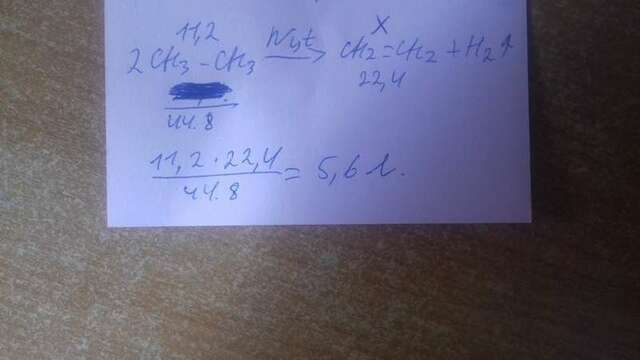 11,2 X
2CH3-CH3 Ni,t → CH2=CH2+H2↑
44.8 22,4
11,2·22,4
44.8 = 5,6 л.